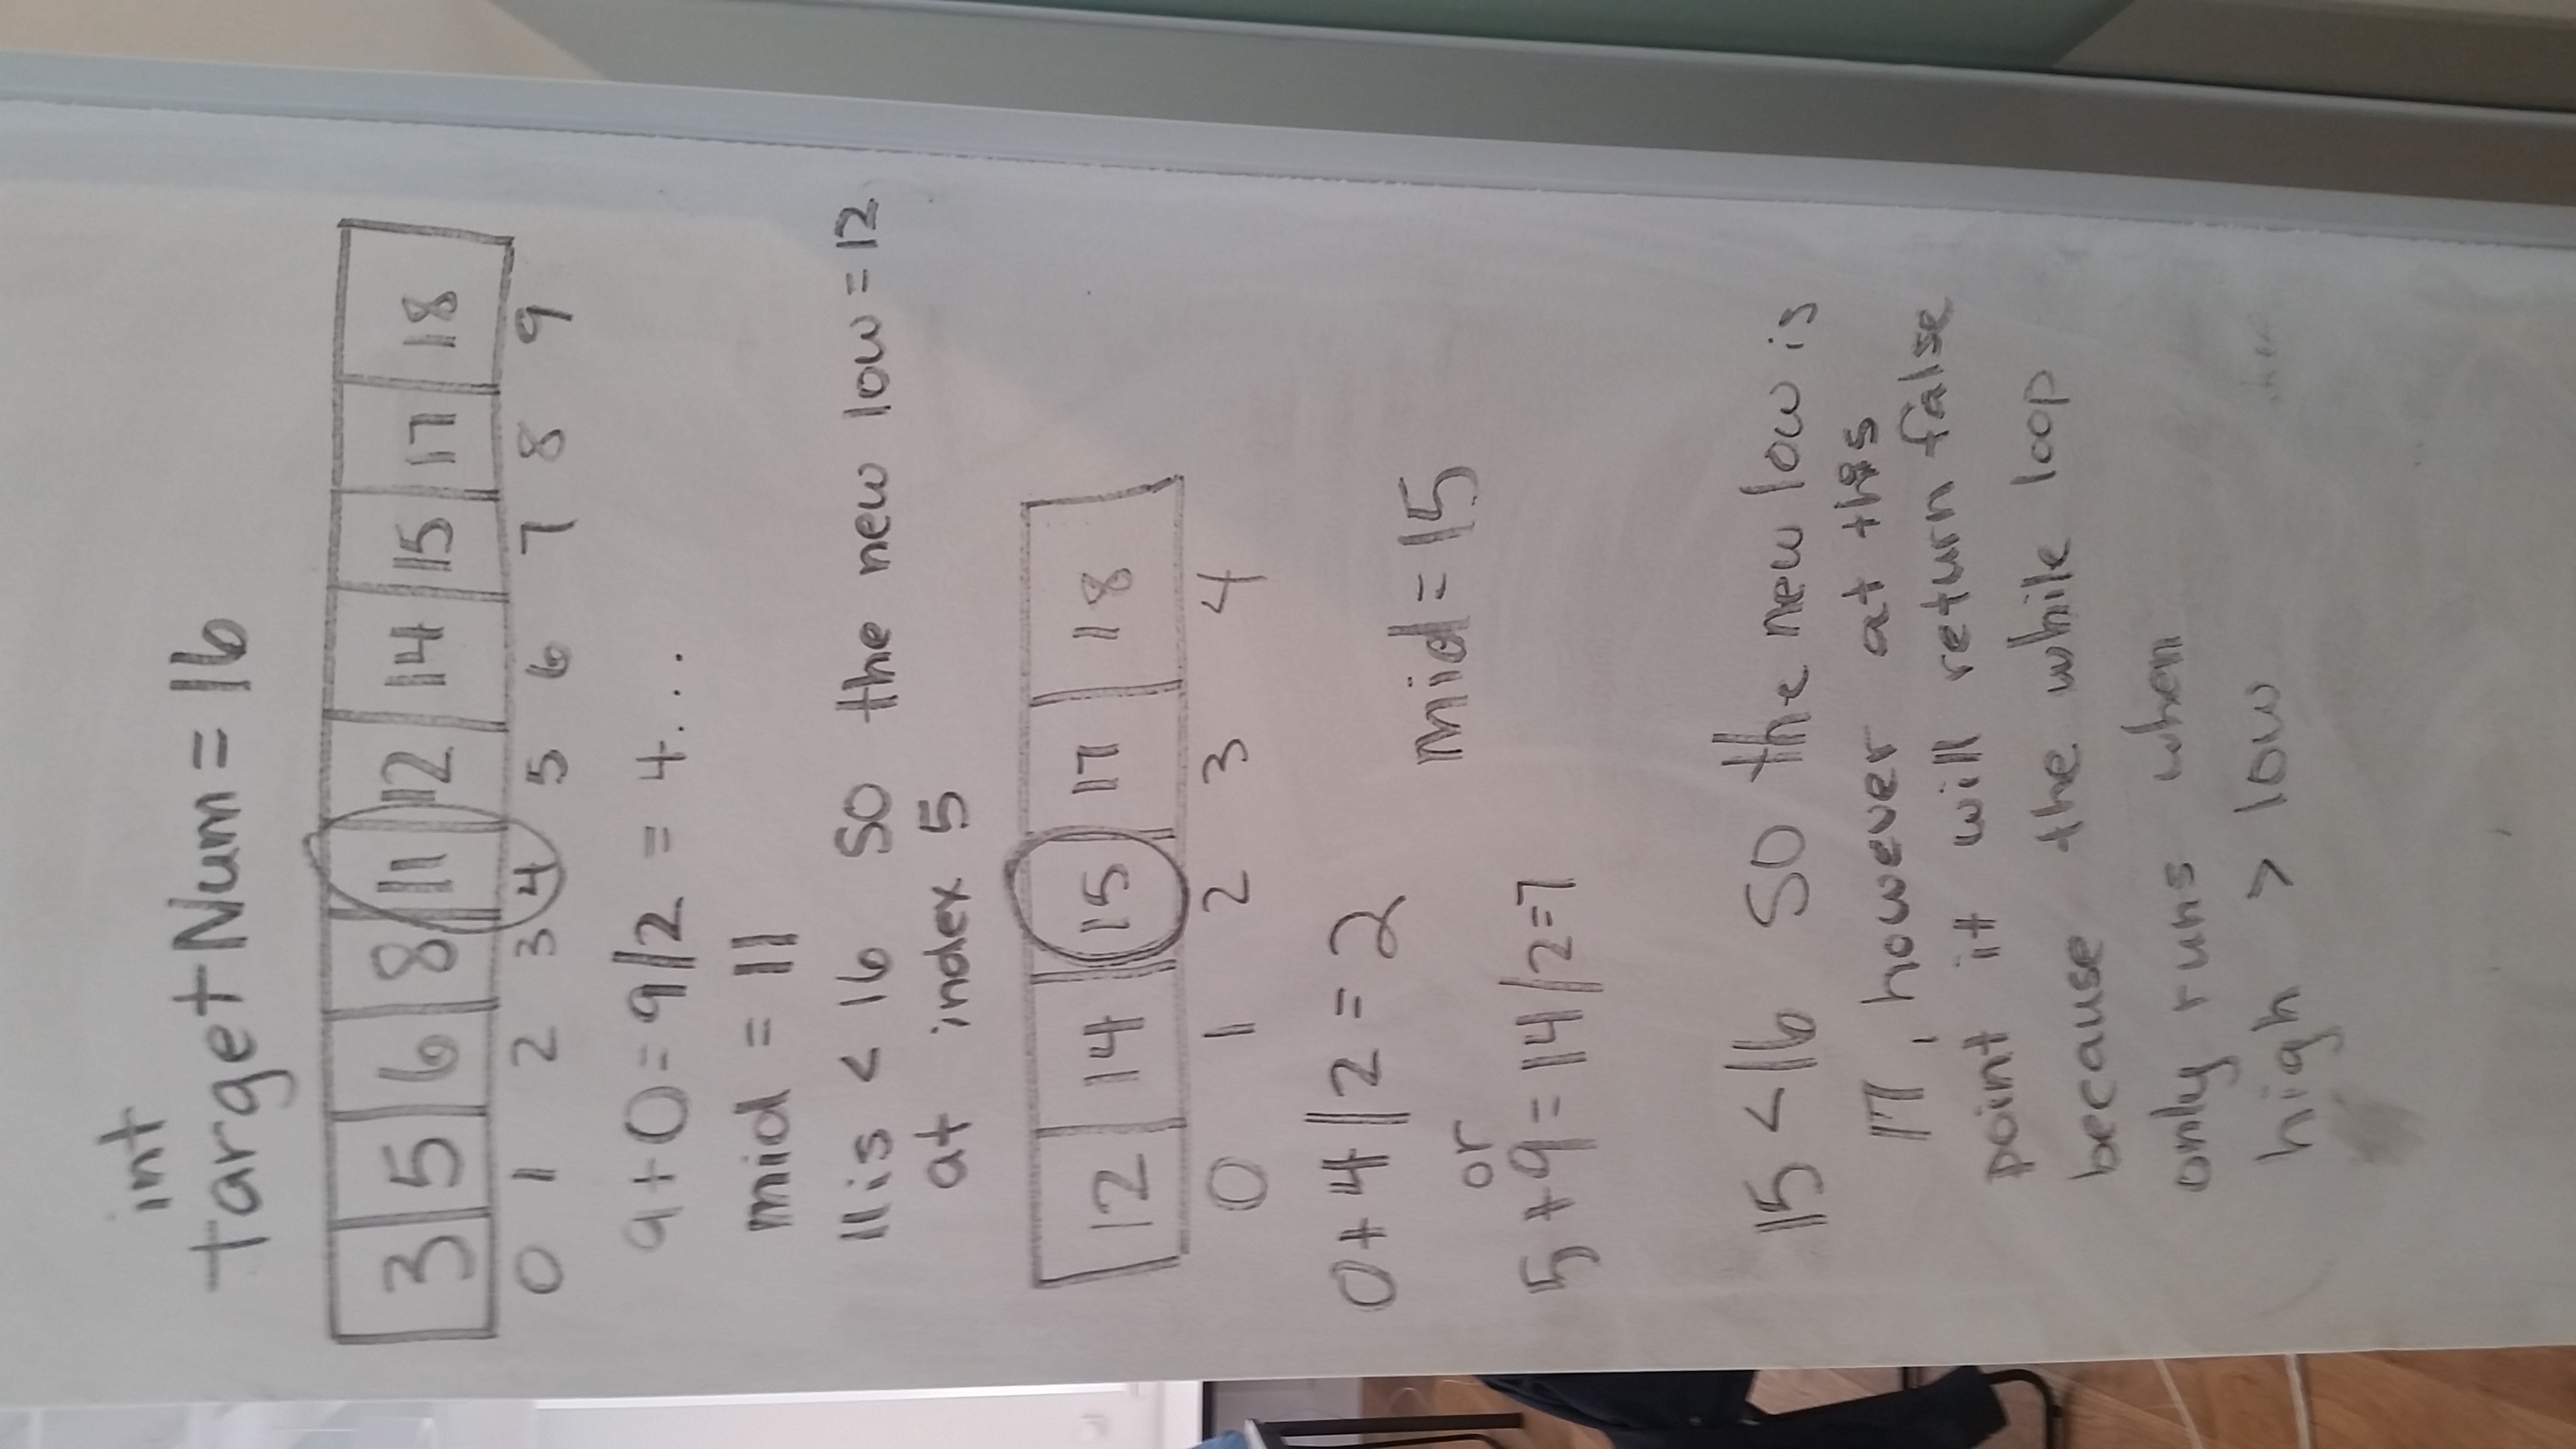 int
targetNum = 16
3 5 6 8 11 12 14 15 17 18
0 1 2 3 4 5 6 7 8 9
9+0=9/2 = 4...
mid = 11
11 is < 16 so the new low = 12
at index 5
12 14 15 17 18
0 1 2 3 4
0+4/2=2
mid=15
or
5+9=14/2=7
15 <16 so the new low is
17, however at this
point it will return false
because the while loop
only runs when
high > low